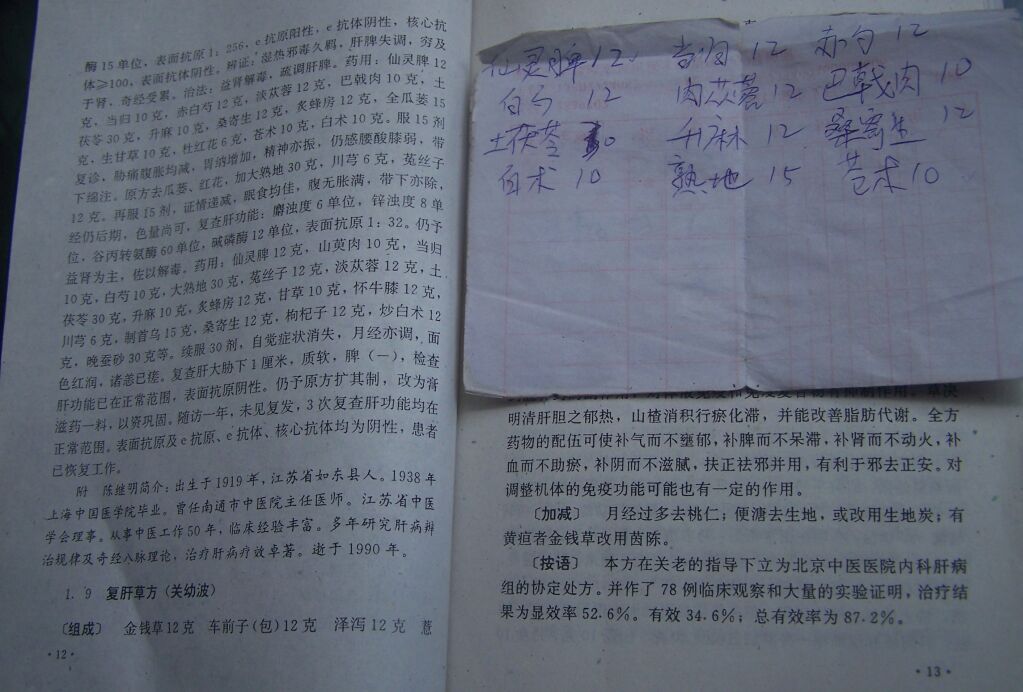 酶15单位，表面抗原1：256，e抗原阳性，e抗体阴性，核心抗
体≥100，表面抗体阴性。辨证：湿热邪毒久羁，肝脾失调，穷及
于肾，奇经受累。治法：益肾解毒，疏调肝脾。药用：仙灵脾12
克，当归10克，赤白芍12克，淡苁蓉12克，巴戟肉10克，土
茯苓30克，升麻10克，桑寄生12克，炙蜂房12克，全瓜蒌15
克，生甘草10克，杜红花6克，苍术10克，白术10克。服15剂
复诊，胁痛腹胀均减，胃纳增加，精神亦振，仍感腰酸膝弱，带
下绵注。原方去瓜蒌、红花，加大熟地30克，川芎6克，菟丝子
12克。再服15剂，证情递减，眠食均佳，腹无胀满，带下亦除，
经仍后期，色量尚可，复查肝功能：麝浊度6单位，锌浊度8单
位，谷丙转氨酶60单位，碱磷酶12单位，表面抗原1：32。仍予
益肾为主，佐以解毒。药用：仙灵脾12克，山萸肉10克，当归
10克，白芍10克，大熟地30克，菟丝子12克，淡苁蓉12克，土
茯苓30克，升麻10克，炙蜂房12克，甘草10克，怀牛膝12克，
川芎6克，制首乌15克，桑寄生12克，枸杞子12克，炒白术12
克，晚蚕砂30克等。续服30剂，自觉症状消失，月经亦调，面
色红润，诸恙已瘥。复查肝大胁下1厘米，质软，脾（一），检查
肝功能已在正常范围，表面抗原阴性。仍予原方扩其制，改为膏
滋药一料，以资巩固。随访一年，未见复发，3次复查肝功能均在
正常范围。表面抗原及e抗原、e抗体、核心抗体均为阴性，患者
已恢复工作。
附 陈继明简介：出生于1919年，江苏省如东县人。1938年
上海中国医学院毕业。曾任南通市中医院主任医师。江苏省中医
学会理事。从事中医工作50年，临床经验丰富。多年研究肝病辨
治规律及奇经八脉理论，治疗肝病疗效卓著。逝于1990年。
1．9 复肝草方（关幼波）
〔组成〕 金钱草12克 车前子(包)12克 泽泻12克 薏
·12·
仙灵脾12 当归12 赤勺12
白勺12 肉苁蓉12 巴戟肉10
土茯苓 升麻12 桑寄生12
白术10 熟地15 苍术10
明清肝胆之郁热，山楂消积行瘀化滞，并能改善脂肪代谢。全方
药物的配伍可使补气而不壅郁，补脾而不呆滞，补肾而不动火，补
血而不助瘀，补阴而不滋腻，扶正祛邪并用，有利于邪去正安。对
调整机体的免疫功能可能也有一定的作用。
〔加减〕 月经过多去桃仁；便溏去生地，或改用生地炭；有
黄疸者金钱草改用茵陈。
〔按语〕 本方在关老的指导下立为北京中医医院内科肝病
组的协定处方。并作了78例临床观察和大量的实验证明，治疗结
果为显效率52.6%。有效34.6%；总有效率为87.2%。
·13·